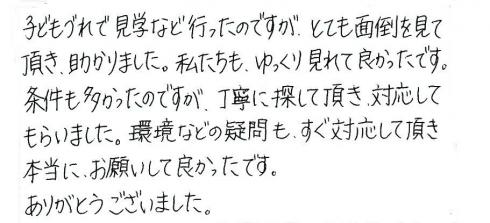 子どもづれで見学など行ったのですが、とても面倒を見て
頂き、助かりました。私たちも、ゆっくり見れて良かったです。
条件も多かったのですが、丁寧に探して頂き、対応して
もらいました。環境などの疑問も、すぐ対応して頂き
本当に、お願いして良かったです。
ありがとうございました。